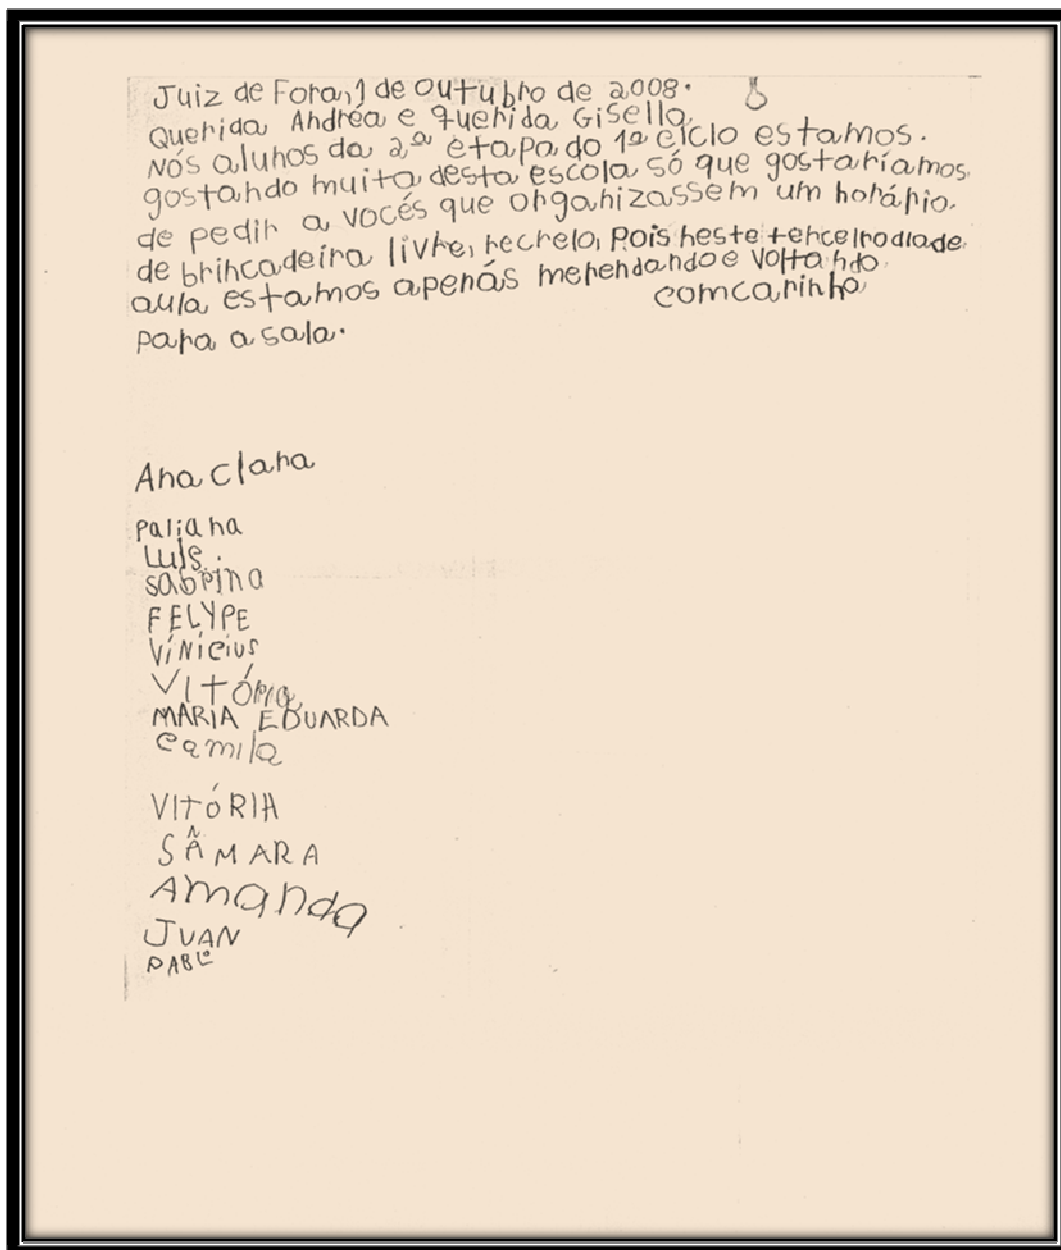 Juiz de Fora, 1 de outubro de 2008.
Querida Andréa e querida Gisella
Nós alunos da 2ª etapa do 1º ciclo estamos.
gostando muito desta escola só que gostaríamos.
de pedir a vocés que organizassem um horário.
de brincadeira livre, recreio, pois neste terceiro dia de
aula estamos apenás merendando e voltando.
para a sala.
com carinho
Ana clara
Luís.
sabrina
FELYPE
Vínícius
VItÓria
MARIA EDUARDA
camila
VITóRIA
SÂMARA
Amanda
JUAN
PABLO